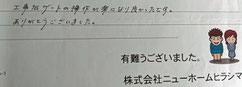 工事后ゲートの操作が楽になり良かったです。
ありがとうございました。
有難うございました。
株式会社ニューホームヒラシマ